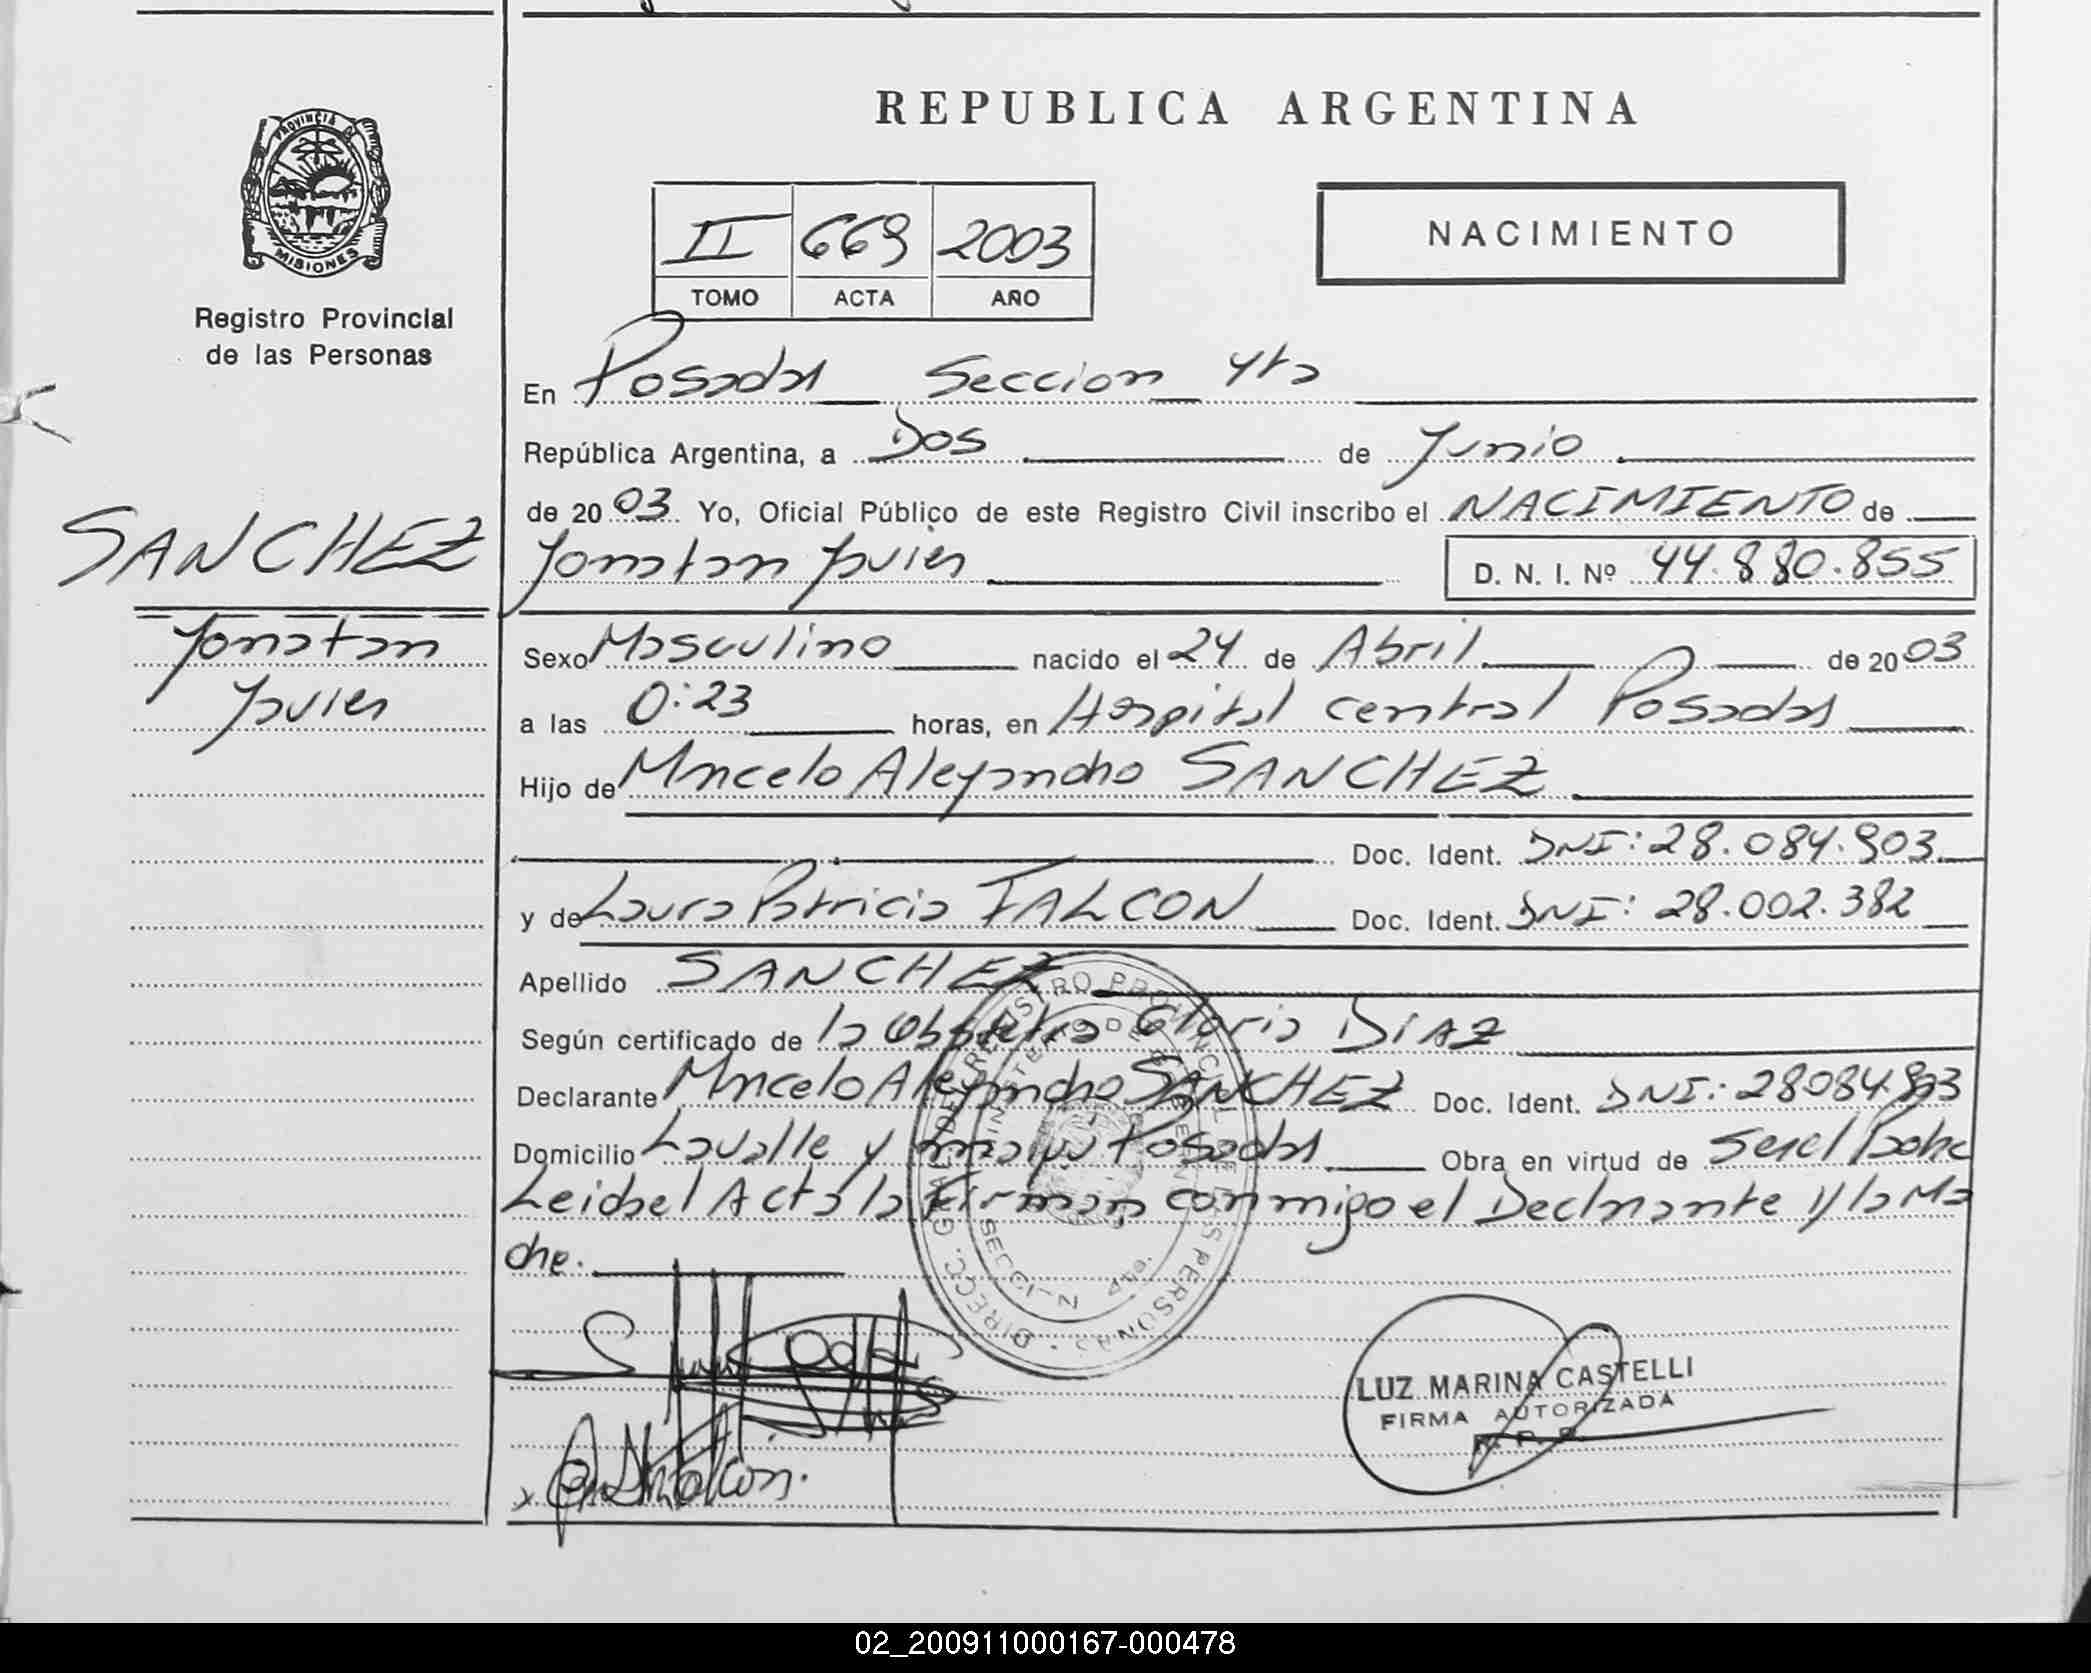 REPUBLICA ARGENTINA
PROVINCIA DE
MISIONES
Registro Provincial
de las Personas
II 669 2003
TOMO ACTA AÑO
NACIMIENTO
En Posadas Seccion 4ta
República Argentina, a Dos de Junio
de 2003 Yo, Oficial Público de este Registro Civil inscribo el NACIMIENTO de
Jonatan Javier D. N. I. Nº 44.880.855
SANCHEZ
Jonatan
Javier
Sexo Masculino nacido el 24 de Abril de 2003
a las 0:23 horas, en Hospital central Posadas
Hijo de Marcelo Alejandro SANCHEZ
Doc. Ident. DNI: 28.084.903
y de Laura Patricia FALCON Doc. Ident. DNI: 28.002.382
Apellido SANCHEZ
Según certificado de la Obstetra Gloria DIAZ
Declarante Marcelo Alejandro SANCHEZ Doc. Ident. DNI: 28084.903
Domicilio Lavalle y Posadas Obra en virtud de
Leida el Acta la Firman conmigo el Declarante y la Ma
dre.
DIRECC. GRAL DEL REGISTRO PROVINCIAL DE LAS PERSONAS
MINISTERIO DE GOBIERNO
SECCION 4ta.
Falcon.
LUZ MARINA CASTELLI
FIRMA AUTORIZADA
R. P. P.
02_200911000167-000478